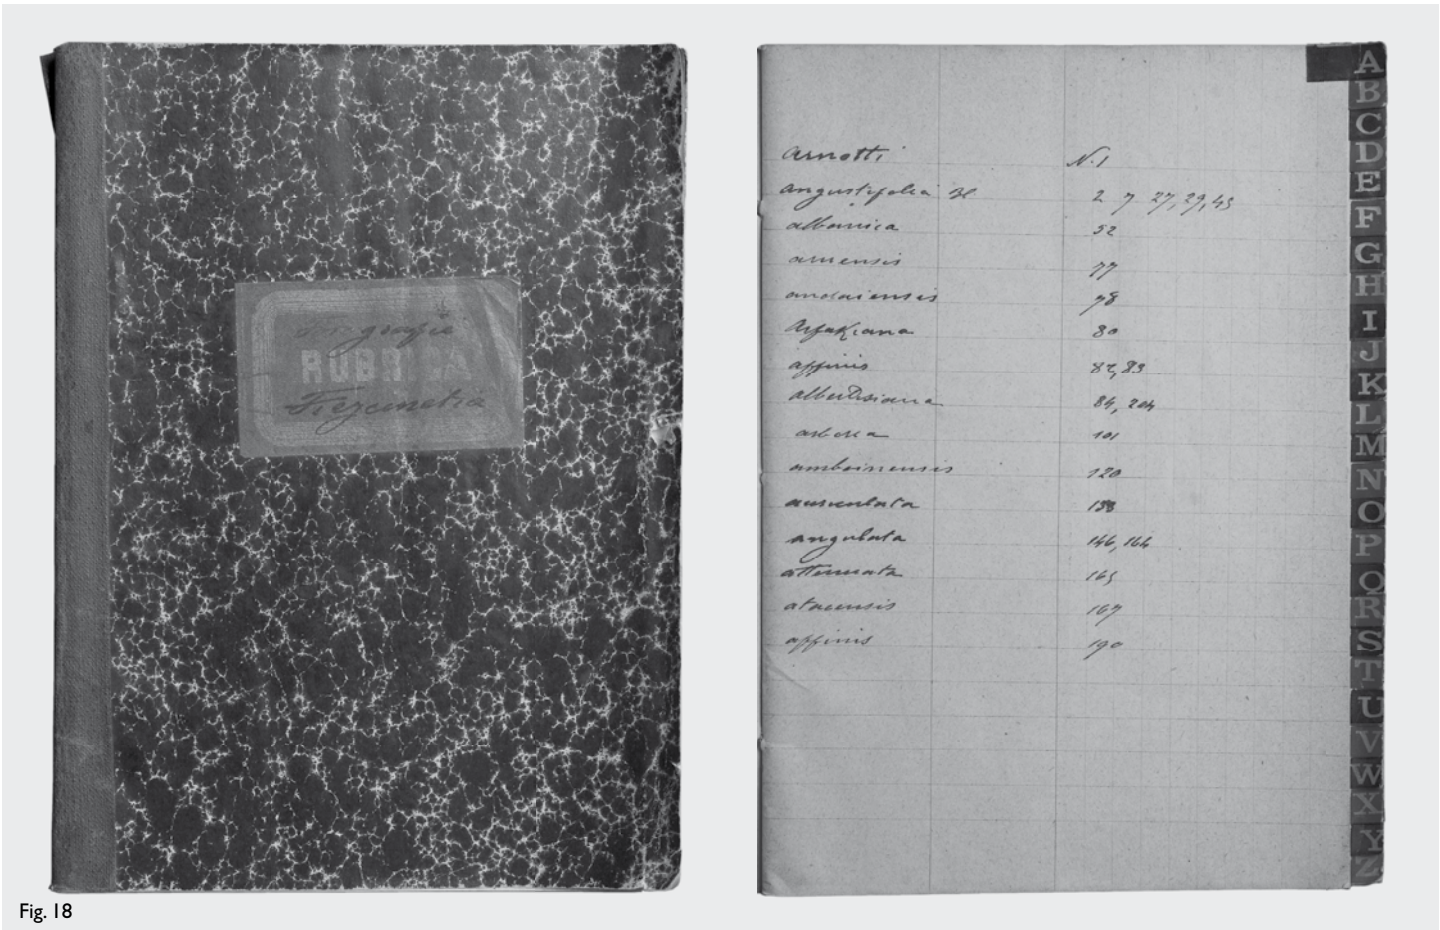 RUBRICA
Freycinetia
Arnotti N. 1
angustifolia Bl 2 7 27, 29, 45
albarnica 52
aruensis 77
andaiensis 78
Arfakiana 80
affinis 82, 83
albertisiana 84, 204
arborea 101
amboinensis 120
auriculata 138
angulata 146, 164
attenuata 165
167
affinis 190
A
B
C
D
E
F
G
H
I
J
K
L
M
N
O
P
Q
R
S
T
U
V
W
X
Y
Z
Fig. 18